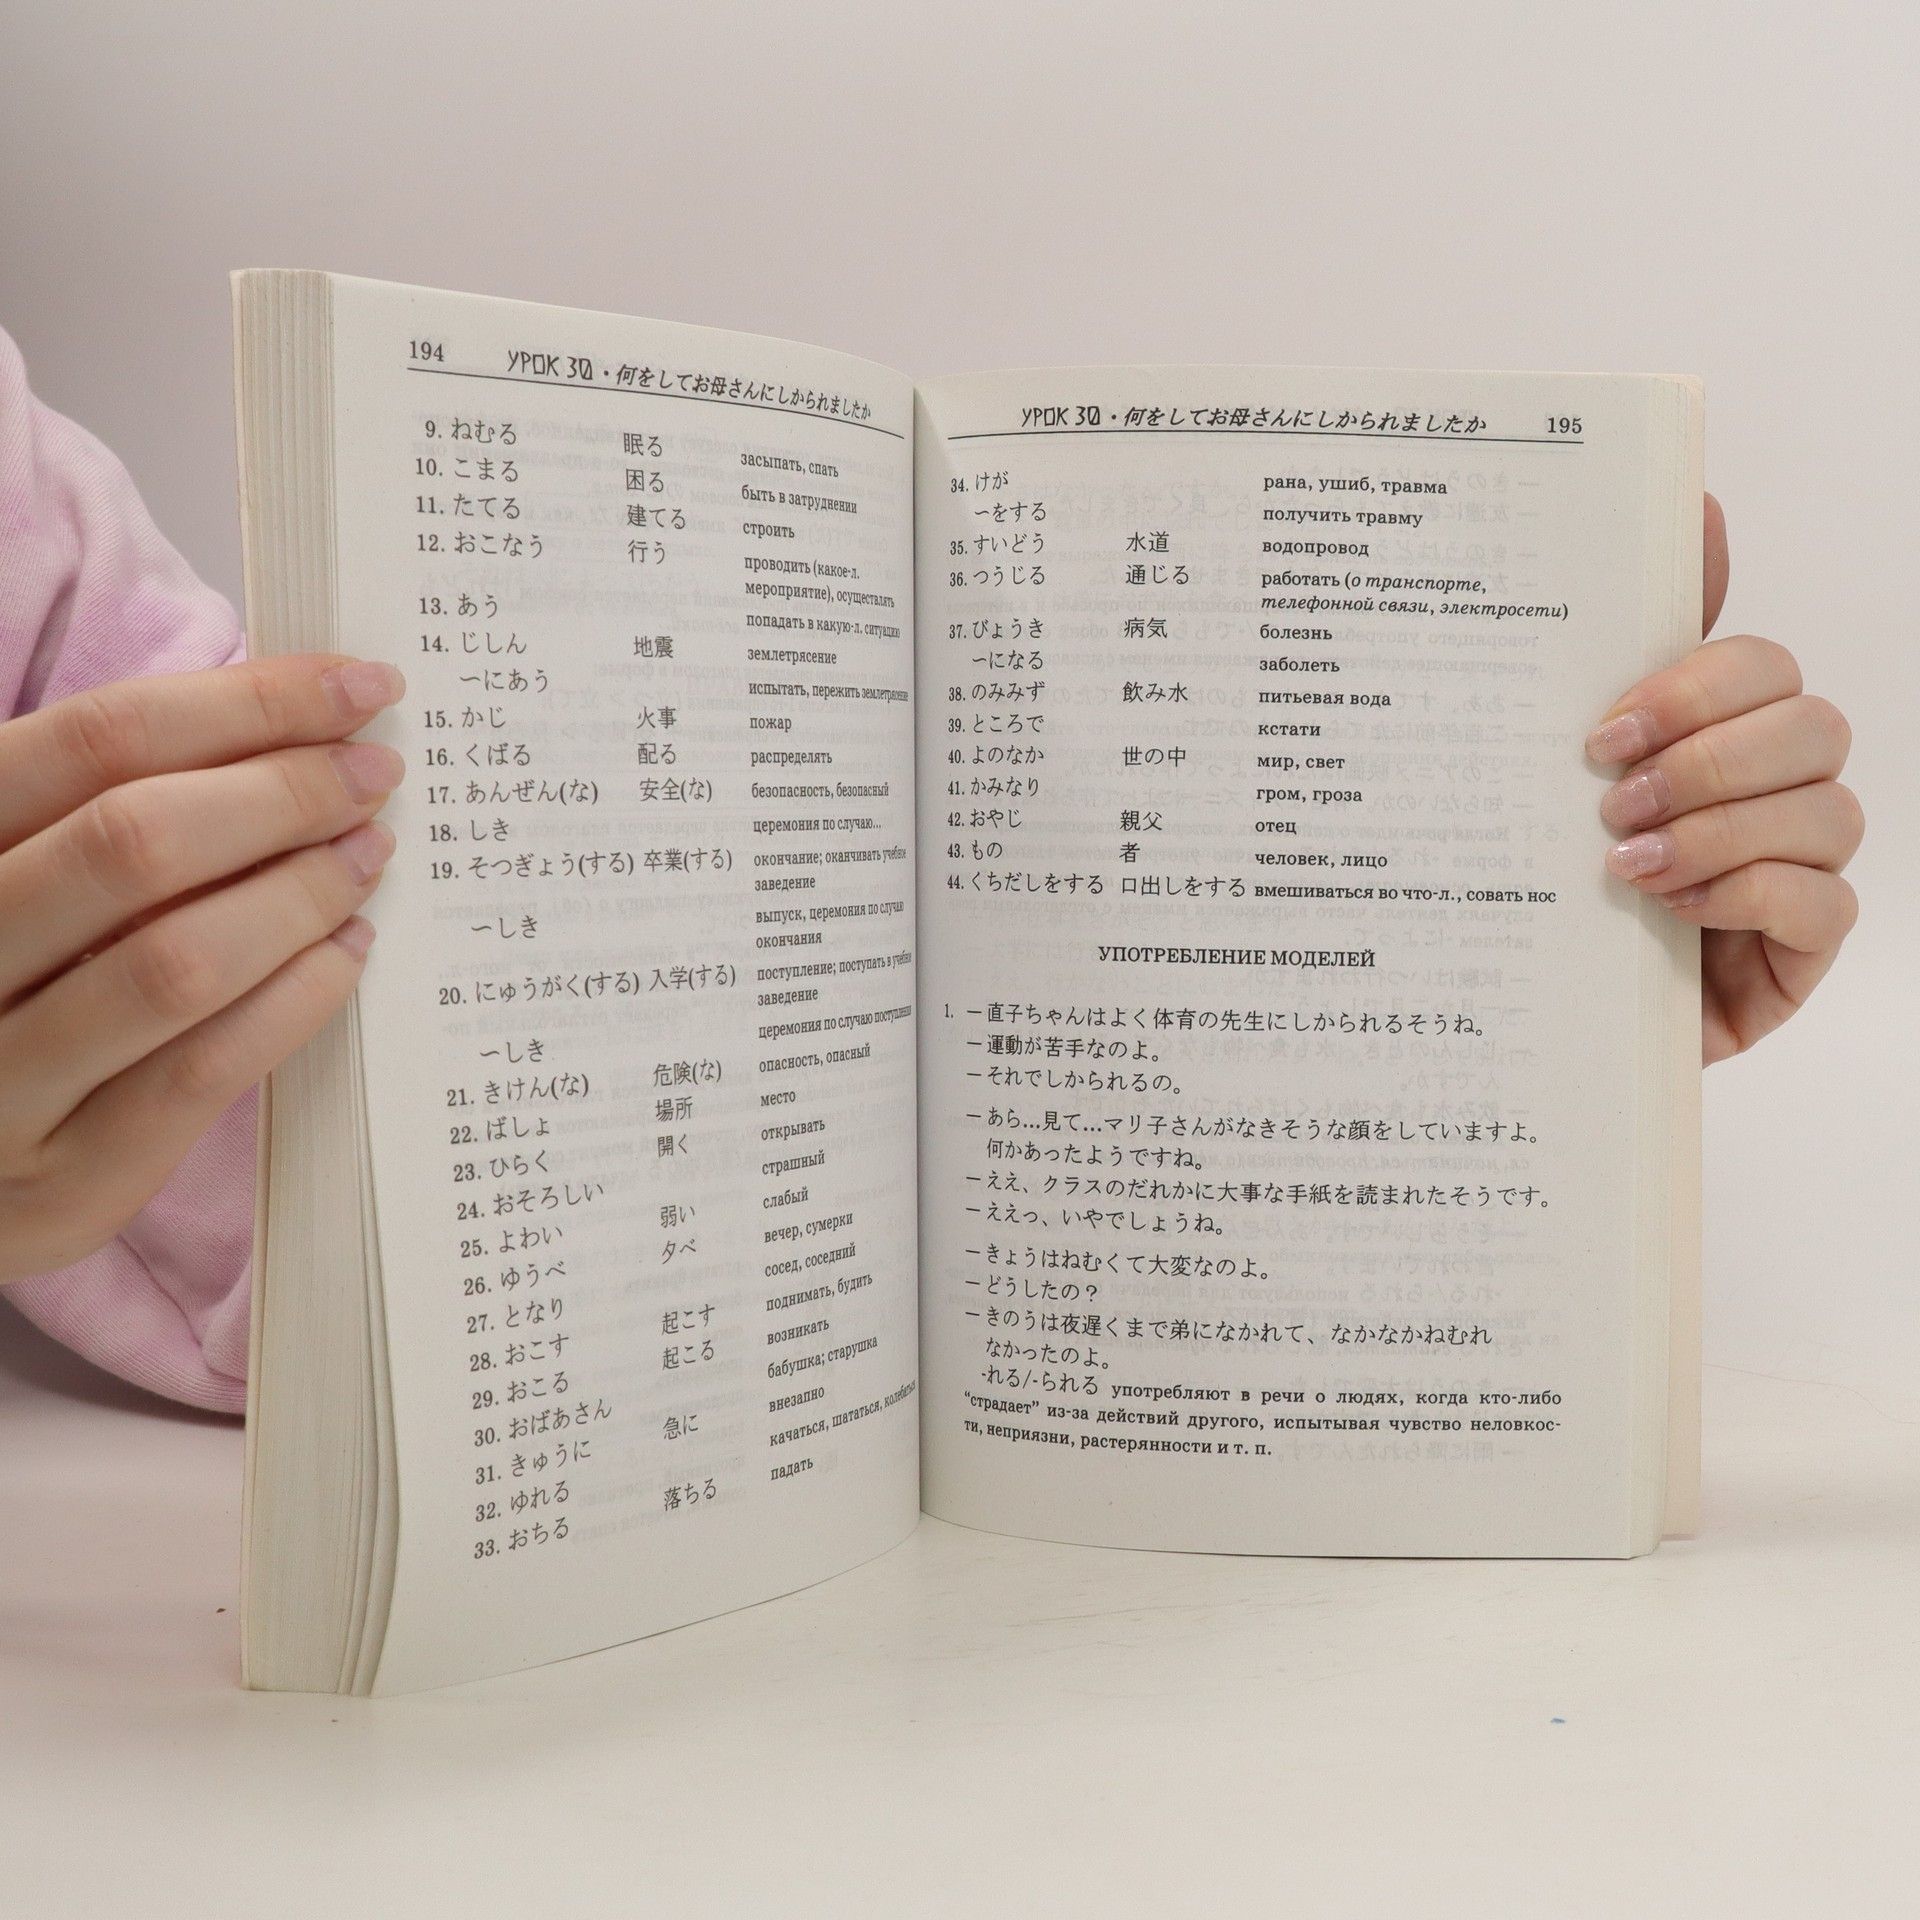 194 УРОК 30 · 何をしてお母さんにしかられましたか
9. ねむる 眠る засыпать, спать
10. こまる 困る быть в затруднении
11. たてる 建てる строить
12. おこなう 行う проводить (какое-л.
мероприятие), осуществлять
13. あう попадать в какую-л. ситуацию
14. じしん 地震 землетрясение
～にあう испытать, пережить землетрясение
15. かじ 火事 пожар
16. くばる 配る распределять
17. あんぜん(な) 安全(な) безопасность, безопасный
18. しき церемония по случаю...
19. そつぎょう(する) 卒業(する) окончание; оканчивать учебное
заведение
～しき выпуск, церемония по случаю
окончания
20. にゅうがく(する) 入学(する) поступление; поступать в
заведение
～しき церемония по случаю поступления
21. きけん(な) 危険(な) опасность, опасный
22. ばしょ 場所 место
23. ひらく 開く открывать
24. おそろしい страшный
25. よわい 弱い слабый
26. ゆうべ 夕べ вечер, сумерки
27. となり сосед, соседний
28. おこす 起こす поднимать, будить
29. おこる 起こる возникать
30. おばあさん бабушка; старушка
31. きゅうに 急に внезапно
32. ゆれる качаться, шататься, колебаться
33. おちる 落ちる падать
УРОК 30 · 何をしてお母さんにしかられましたか 195
34. けが рана, ушиб, травма
～をする получить травму
35. すいどう 水道 водопровод
36. つうじる 通じる работать (о транспорте,
телефонной связи, электросети)
37. びょうき 病気 болезнь
～になる заболеть
38. のみみず 飲み水 питьевая вода
39. ところで кстати
40. よのなか 世の中 мир, свет
41. かみなり гром, гроза
42. おやじ 親父 отец
43. もの 者 человек, лицо
44. くちだしをする 口出しをする вмешиваться во что-л., совать нос
УПОТРЕБЛЕНИЕ МОДЕЛЕЙ
1. — 直子ちゃんはよく体育の先生にしかられるそうね。
— 運動が苦手なのよ。
— それでしかられるの。
— あら…見て…マリ子さんがなきそうな顔をしていますよ。
何かあったようですね。
— ええ、クラスのだれかに大事な手紙を読まれたそうです。
— ええっ、いやでしょうね。
— きょうはねむくて大変なのよ。
— どうしたの？
— きのうは夜遅くまで弟になかれて、なかなかねむれ
なかったのよ。
-れる/-られる употребляют в речи о людях, когда кто-либо
“страдает” из-за действий другого, испытывая чувство неловкос-
ти, неприязни, растерянности и т. п.